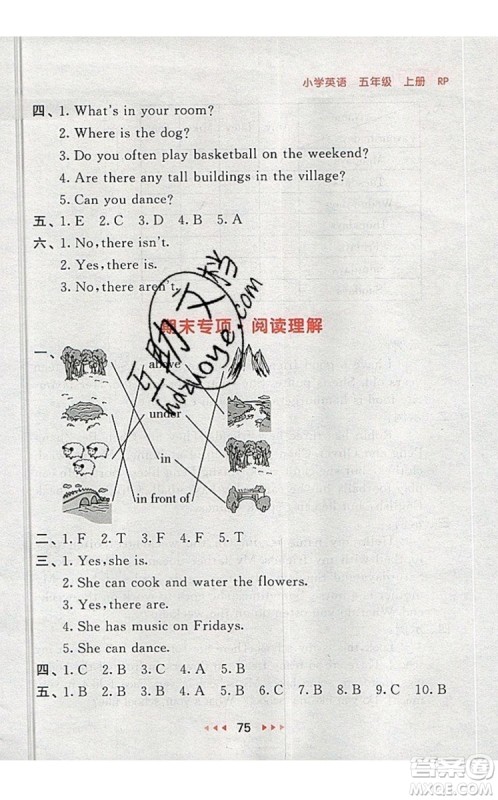 小学英语 五年级 上册 RP
四、1. What's in your room?
2. Where is the dog?
3. Do you often play basketball on the weekend?
4. Are there any tall buildings in the village?
5. Can you dance?
五、1. E 2. C 3. D 4. B 5. A
六、1. No, there isn't.
2. Yes, there is.
3. No, there aren't.
期末专项 阅读理解
一、
above
under
in
in front of
二、1. F 2. T 3. F 4. F 5. T
三、1. Yes, she is.
2. She can cook and water the flowers.
3. Yes, there are.
4. She has music on Fridays.
5. She can dance.
四、1. C 2. B 3. C 4. A 5. B
五、1. B 2. A 3. A 4. B 5. B 6. C 7. B 8. B 9. C 10. B
75
互助文档
hdzuoye.com
作业帮